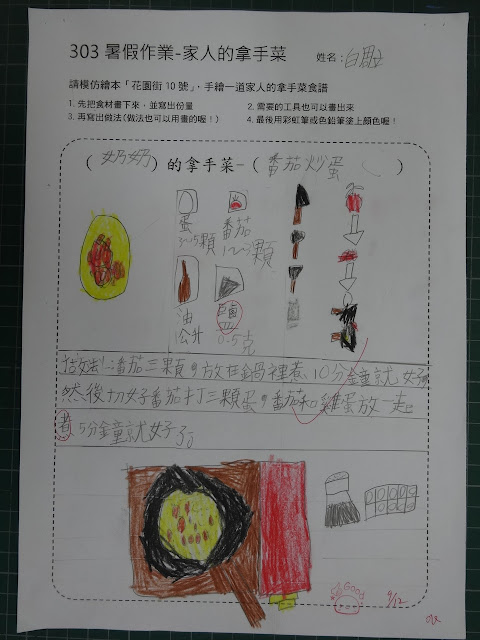 303 暑假作業-家人的拿手菜 姓名:
請模仿繪本「花園街10號」,手繪一道家人的拿手菜食譜
1. 先把食材畫下來,並寫出份量 2. 需要的工具也可以畫出來
3. 再寫出做法(做法也可以用畫的喔!) 4. 最後用彩虹筆或色鉛筆塗上顏色喔!
( 奶奶 ) 的拿手菜-( 番茄炒蛋 )
蛋 番茄
顆 1~3顆
油 鹽
公升 0.5克
番茄三顆,放在鍋裡煮10分鐘就好
然後切好番茄打三顆蛋,番茄和雞蛋放一起
煮5分鐘就好了。
Good
9/12